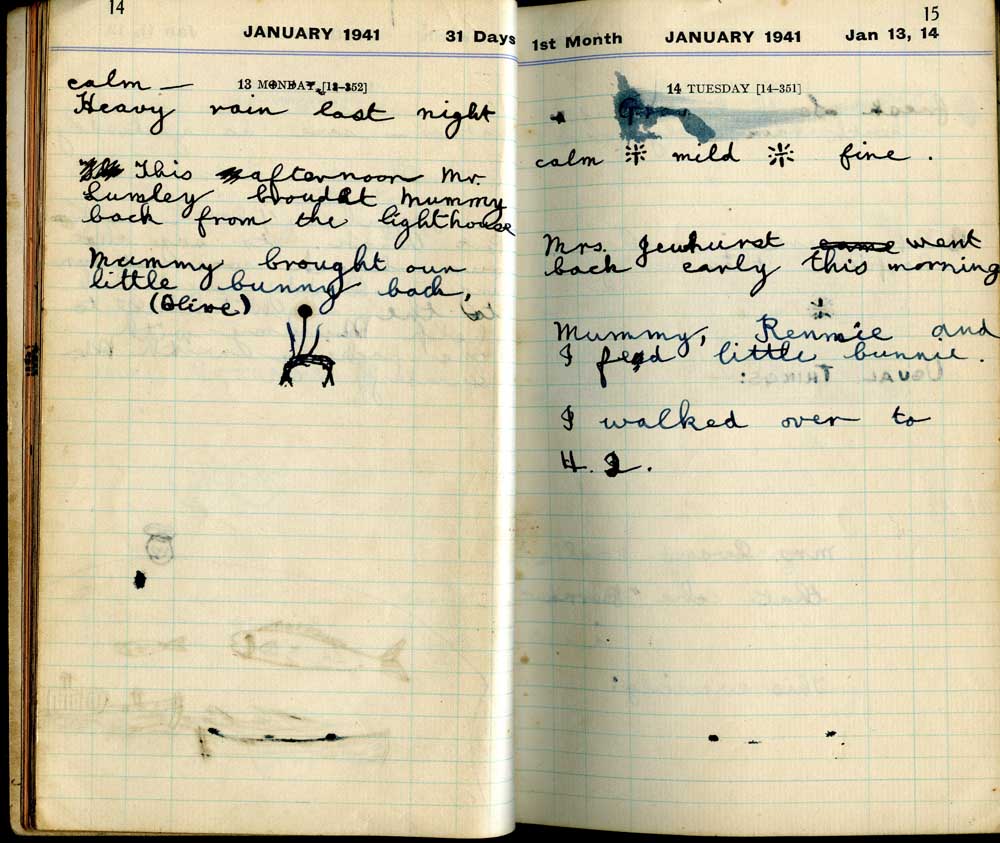 14
JANUARY 1941 31 Days
13 MONDAY [13-352]
calm —
Heavy rain last night
This afternoon Mr.
Lumley brought Mummy
back from the lighthouse
Mummy brought our
little bunny back,
(Olive)
15
1st Month JANUARY 1941 Jan 13, 14
14 TUESDAY [14-351]
calm mild fine .
Mrs. Jewhurst came went
back early this morning
Mummy, Rennie and
I fed little bunnie.
I walked over to
H. I.
USUAL THINGS: